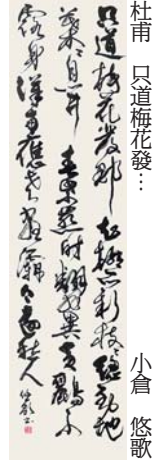 杜甫　只道梅花發…　小倉　悠歌
只道梅花發那知柳亦新枝々總到地
葉々自開春紫燕時翻翼黃鸝不
露身漢南應老盡灞上遠愁人 悠歌書